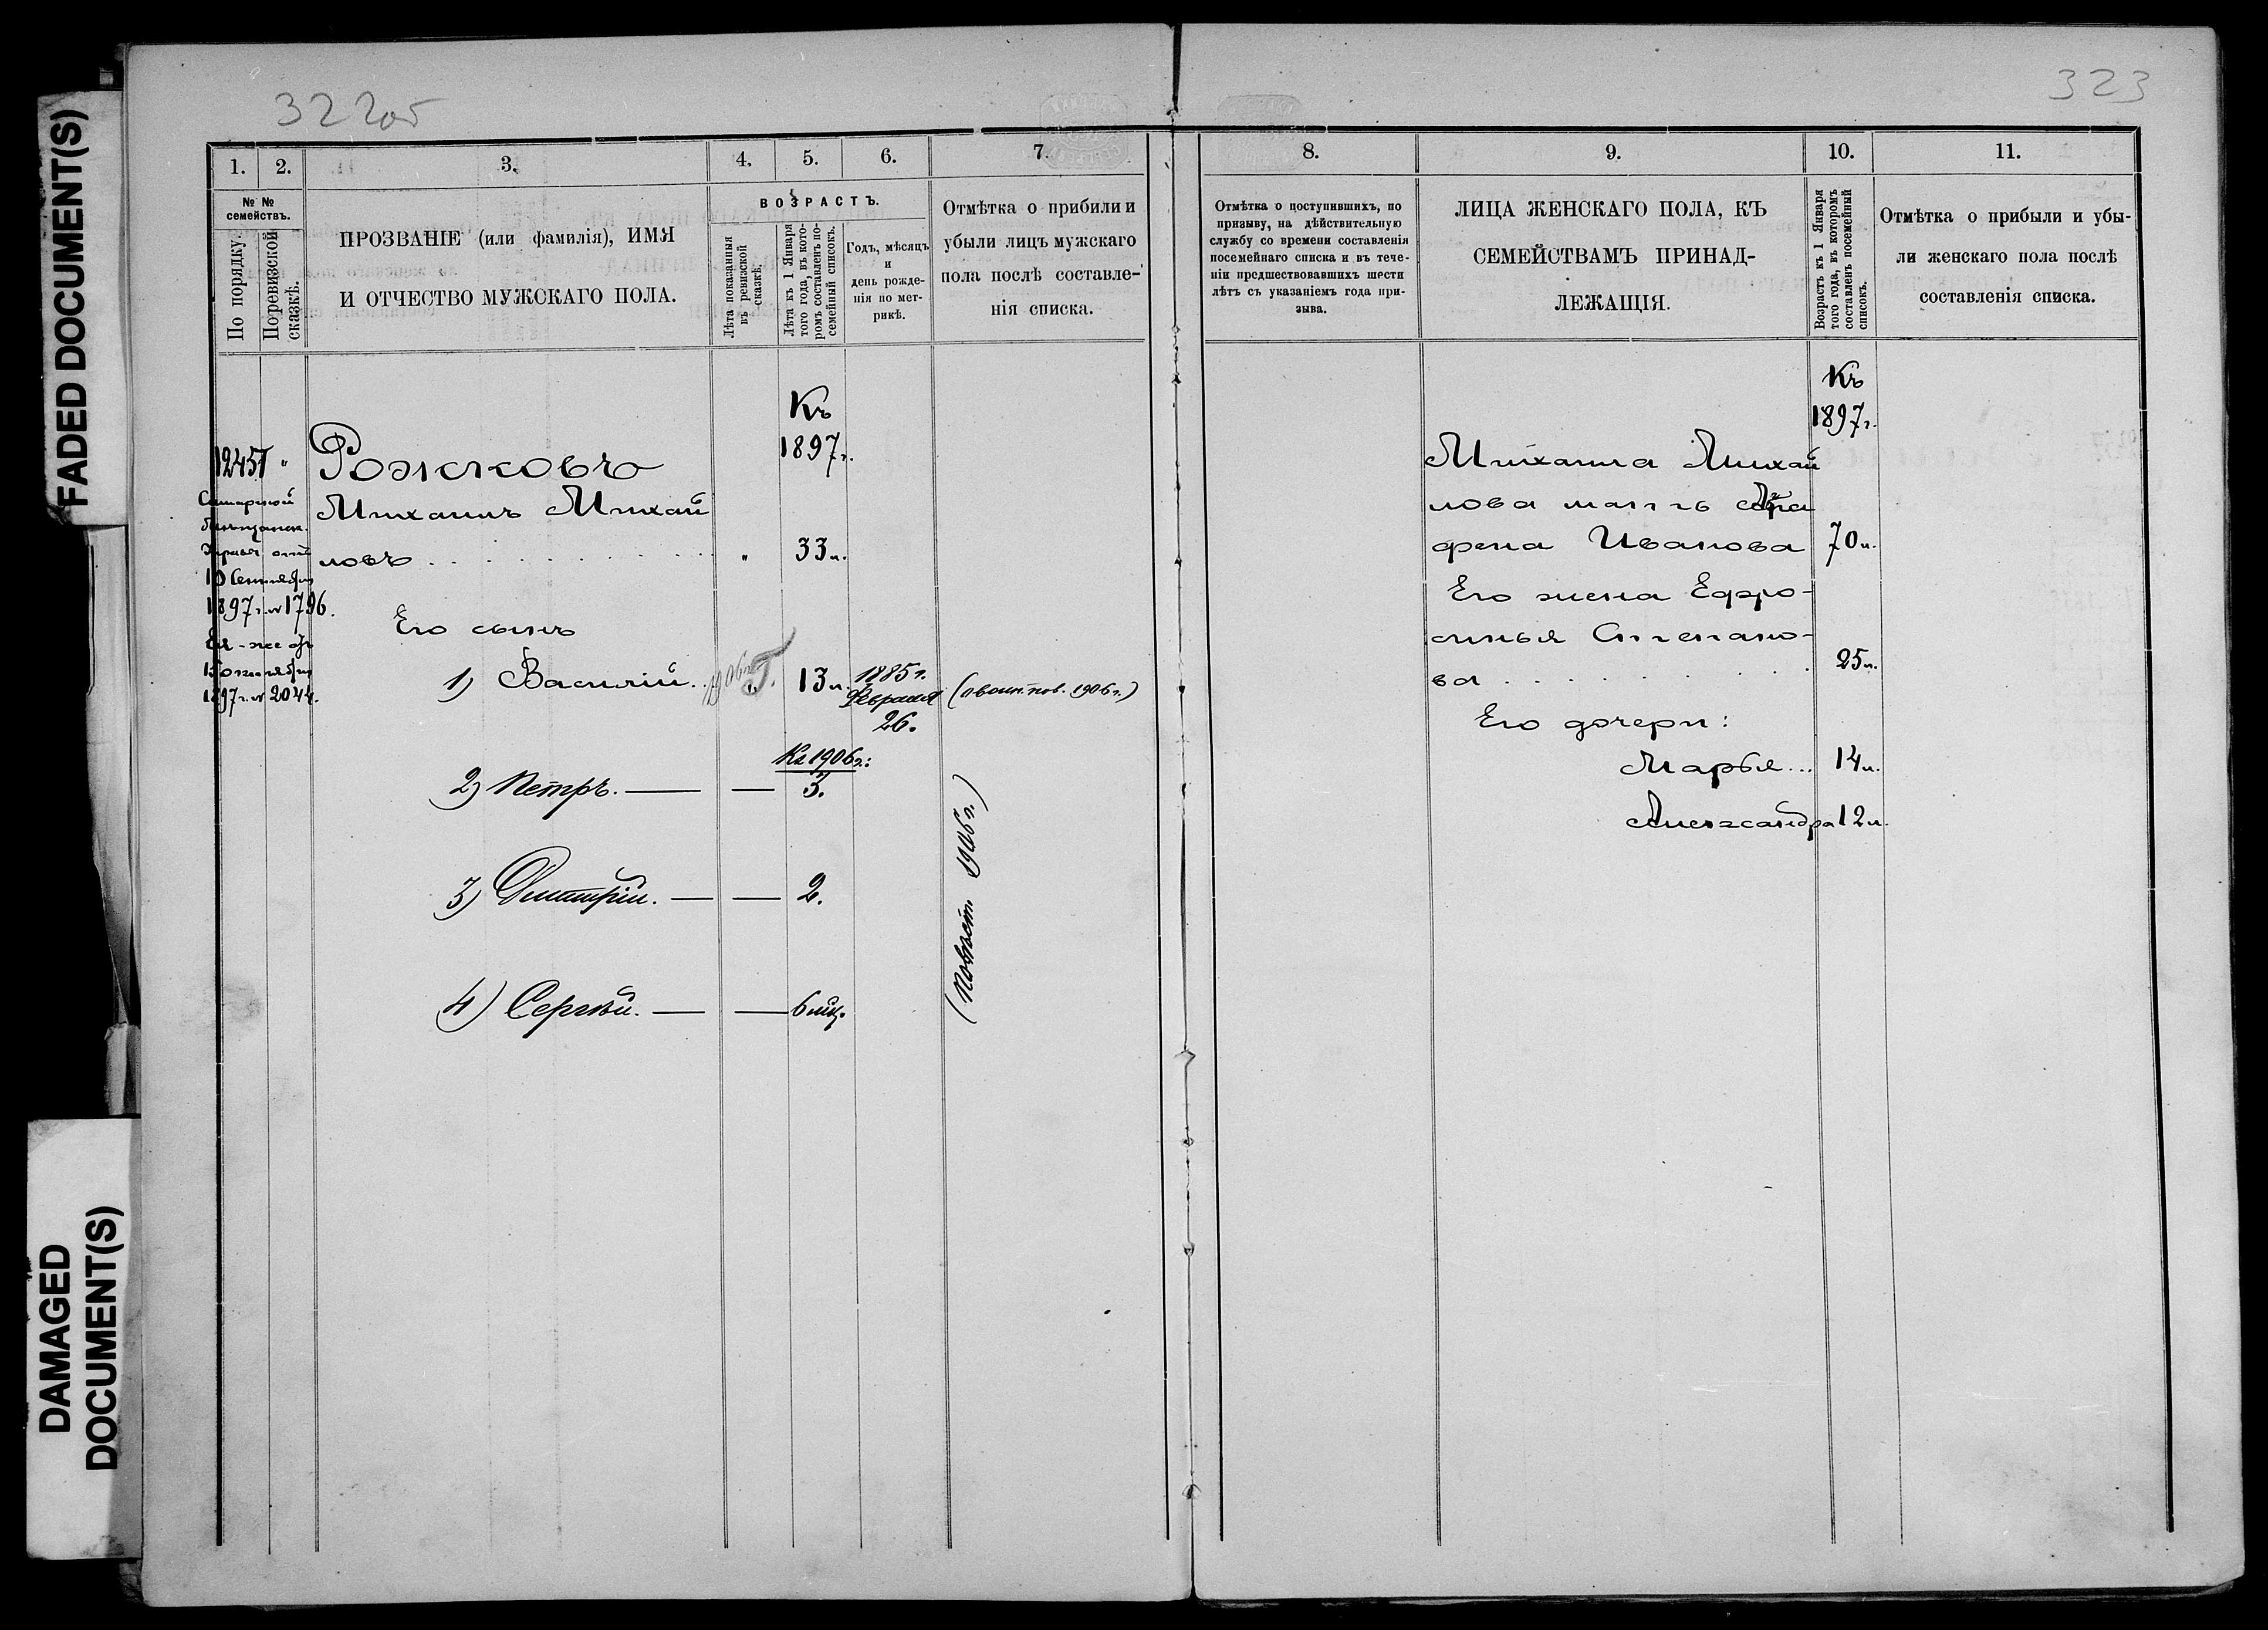 FADED DOCUMENT(S)
DAMAGED
DOCUMENT(S)
322об
1. 2. 3. 4. 5. 6. 7.
№ №
семействъ.
По порядку.
По ревизской
сказкѣ.
ПРОЗВАНІЕ (или фамилія), ИМЯ
И ОТЧЕСТВО МУЖСКАГО ПОЛА.
ВОЗРАСТЪ.
Лѣта показанныя
въ ревизской
сказкѣ.
Лѣта къ 1 Января
того года, въ кото-
ромъ составленъ по-
семейный списокъ.
Годъ, мѣсяцъ
и
день рожде-
нія по мет-
рикѣ.
Отмѣтка о прибыли и
убыли лицъ мужскаго
пола послѣ составле-
нія списка.
Къ
1897 г.
1245 "
Рожковъ
Михаилъ Михай
ловъ . . . " 33 л.
Самарской
Мѣщанск.
10 Сентября
1897 г. № 1796.
Ея-же отъ
15 октября
1897 г. № 2044.
Его сынъ
1) Василій. 1906 г. 13 л. 1885 г.
Февраля
26.
Къ 1906 г.:
2) Петръ. — — 3.
3) Дмитрій. — — 2.
4) Сергѣй. — — 6 мѣс.
323
8. 9. 10. 11.
Отмѣтка о поступившихъ, по
призыву, на дѣйствительную
службу со времени составленія
посемейнаго списка и въ тече-
ніи предшествовавшихъ шести
лѣтъ съ указаніемъ года при-
зыва.
ЛИЦА ЖЕНСКАГО ПОЛА, КЪ
СЕМЕЙСТВАМЪ ПРИНАД-
ЛЕЖАЩІЯ.
Возрастъ къ 1 Января
того года, въ которомъ
составленъ посемейный
списокъ.
Отмѣтка о прибыли и убы-
ли женскаго пола послѣ
составленія списка.
Къ
1897 г.
Михаила Михай
лова мать Агра
фена Иванова 70 л.
Его жена Ефро-
синья Степано-
ва . . . 25 л.
Его дочери:
Марья... 14 л.
Александра 12 л.